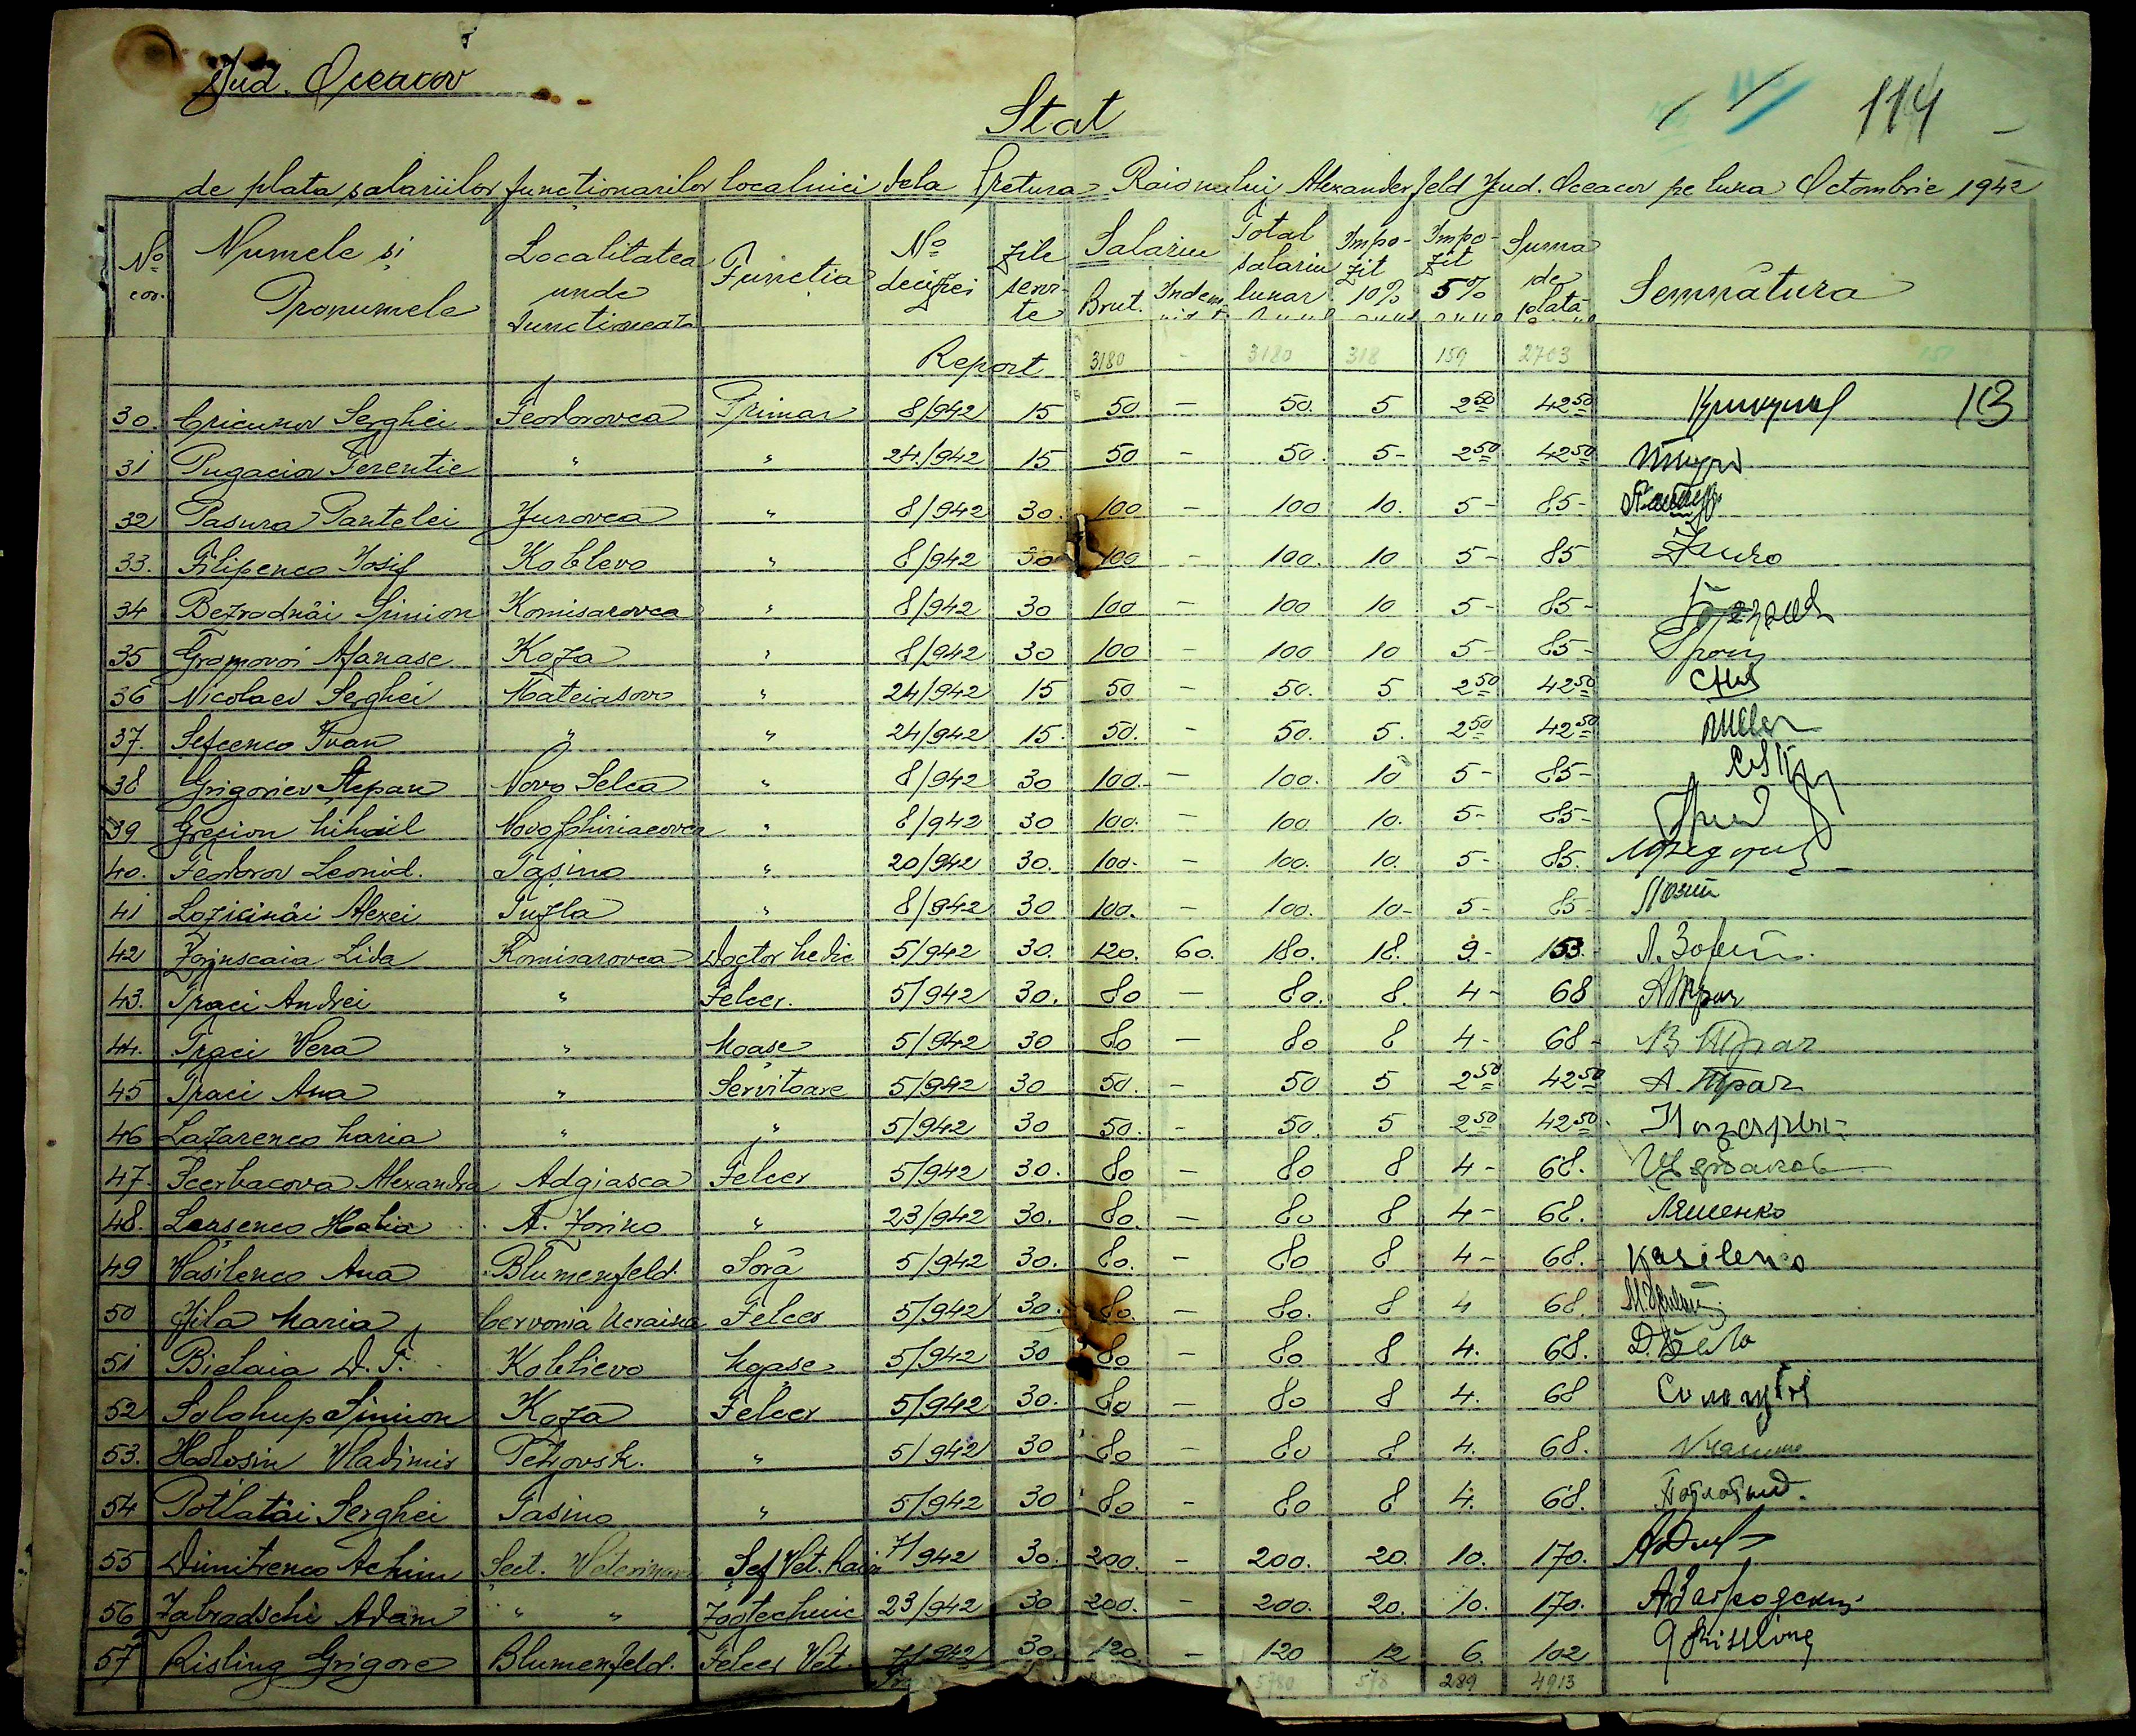 Jud. Oceacov
Stat
114
de plata salariilor funcționarilor localnici dela Pretura Raionului Alexanderfeld Jud. Oceacov pe luna Octombrie 1942
No cor. Numele și Pronumele Localitatea unde funcționează Funcția No deciziei Zile servite Salariu Brut. Indem. Total salariu lunar Impozit 10% Impozit 5% Suma de plată Semnătura
Report 3180 - 3180 318 159 2703
30. Cricunov Serghei Feodorovca Primar 8/942 15 50 - 50. 5 2 50 42 50 113
31 Pugaciov Terentie " " 24/942 15 50 - 50. 5- 2 50 42 50
32 Pasura Pantelei Jurovca " 8/942 30. 100 - 100 10. 5- 85-
33. Filipenco Iosif Koblevo " 8/942 30 100 - 100. 10 5- 85
34 Bezrodnâi Simion Komisarovca " 8/942 30 100 - 100 10 5- 85-
35 Gromovoi Afanase Koza " 8/942 30 100 - 100 10 5- 85-
36 Nicolaev Serghei Mateiasovo " 24/942 15 50 - 50. 5 2 50 42 50
37. Sefcenco Ivan " " 24/942 15. 50. - 50. 5. 2 50 42 50
38 Grigoriev Stepan Novo Selca " 8/942 30 100. - 100. 10 5- 85-
39 Grecion Mihail Novo Ghiriacovca " 8/942 30 100. - 100 10. 5- 85-
40. Feodorov Leonid. Tașino " 20/942 30. 100- - 100. 10. 5- 85.
41 Lozicinâi Alexei Tuzla " 8/942 30 100. - 100. 10- 5- 85-
42 Zoinscaia Lida Komisarovca Doctor Medic 5/942 30. 120. 60. 180. 18. 9- 153.-
43. Traci Andrei " Felcer. 5/942 30. 80 - 80. 8. 4- 68
44. Traci Vera " Moașe 5/942 30 80 - 80 8 4- 68- В Трач
45 Traci Ana " Servitoare 5/942 30 50. - 50 5 2 50 42 50 А. Трач
46 Lazarenco Maria " " 5/942 30 50. - 50. 5 2 50 42 50.
47. Scerbacova Alexandra Adgiasca Felcer 5/942 30. 80 - 80 8 4- 68. Щербакова
48. Leașenco Halia A. Zorino " 23/942 30. 80. - 80 8 4- 68. Ляшенко
49 Vasilenco Ana Blumenfeld. Soră 5/942 30. 80. - 80 8 4- 68. Vasilenco
50 Jila Maria Cervonia Ucraina Felcer 5/942 30. 80. - 80. 8 4 68.
51 Bielaia D. T. Koblievo Moașe 5/942 30 80 - 80 8 4. 68. Д. Бела
52 Solohup Simion Koza Felcer 5/942 30. 80 - 80 8 4. 68 Сологуб
53. Hodosin Vladimir Petrovsk. " 5/942 30 80 - 80 8 4. 68.
54 Potlatâi Serghei Tasino " 5/942 30 80 - 80 8 4. 68.
55 Dimitrenco Achim Sect. Veterinar Șef Vet. Raion 7/942 30. 200. - 200. 20. 10. 170.
56 Zabrodschi Adam " " Zootechnic 23/942 30 200. - 200. 20. 10. 170. А Забродский
57 Risling Grigore Blumenfeld. Felcer Vet. 7/942 30. 120. - 120 12 6. 102 G Rissling
5780 578 289 4913